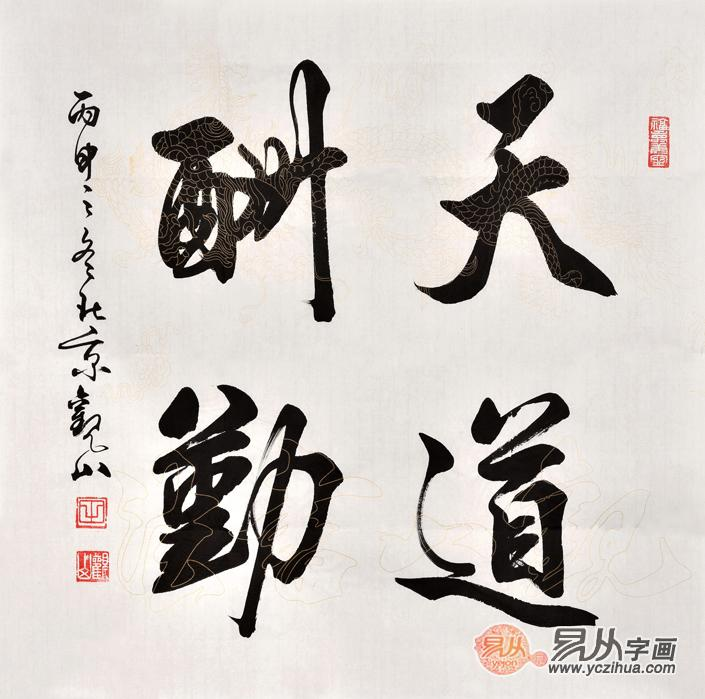 天道
酬勤
丙申之冬北京觀山
易从字画
yejon
www.yczihua.com